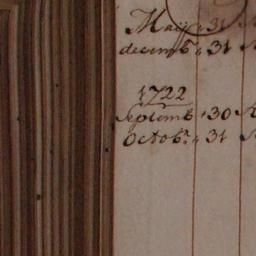 Maij 31
decemb.r 31
1722
Septemb 30
Octob.r 31